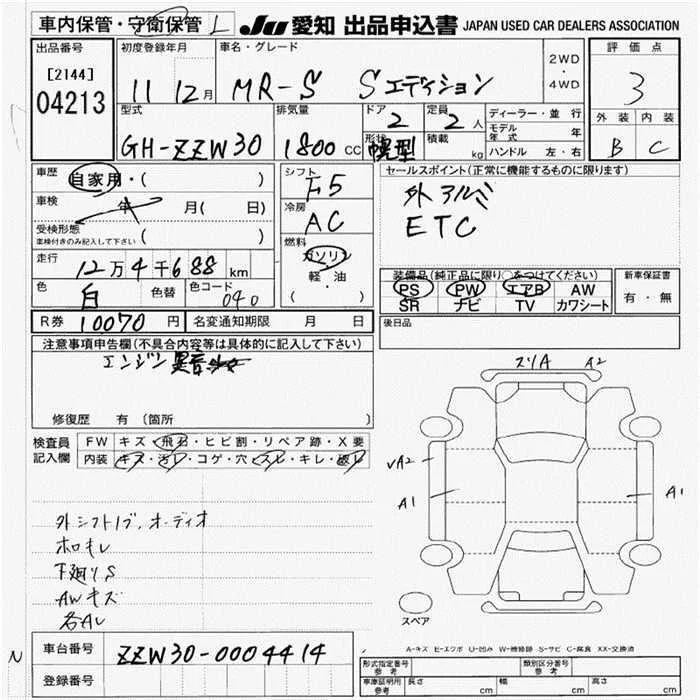 車内保管・守衛保管 L JU 愛知 出品申込書 JAPAN USED CAR DEALERS ASSOCIATION
出品番号
[2144]
04213
初度登録年月
11 12月
車名・グレード
MR-S Sエディション
2WD
・
4WD
評価点
3
外装 内装
B C
型式
GH-ZZW30
排気量
1800 CC
ドア
2
形状
幌型
定員
2人
積載
kg
ディーラー・並行
モデル年式 年
ハンドル 左・右
車歴 自家用・( )
車検 年 月( 日)
受検形態
車検付きのみ記入して下さい ( )
走行 12万4千688 km
色 白 色替 色コード 040
シフト
F5
冷房
AC
燃料
ガソリン
軽・油
( )
セールスポイント(正常に機能するものに限ります)
外アルミ
ETC
装備品(純正品に限り○をつけてください)
PS PW エアB AW
SR ナビ TV カワシート
新車保証書
有・無
R券 10070円 名変通知期限 月 日
後日品
注意事項申告欄(不具合内容等は具体的に記入して下さい)
エンジン異音
修復歴 有(箇所 )
検査員記入欄
FW キズ・飛石・ヒビ割・リペア跡・X要
内装 キズ・汚レ・コゲ・穴・スレ・キレ・破レ
外シフトノブ、オーディオ
ホロキレ
下廻りS
AWキズ
各AU
スリA A2
VA2
A1
A1
スペア
A-キズ E-エクボ U-凹み W-補修跡 S-サビ C-腐食 XX-交換済
N
車台番号 ZZW30-0004414
登録番号
形式指定番号 参考
類別区分番号 参考
車庫証明用 参考 長さ cm 幅 cm 高さ cm